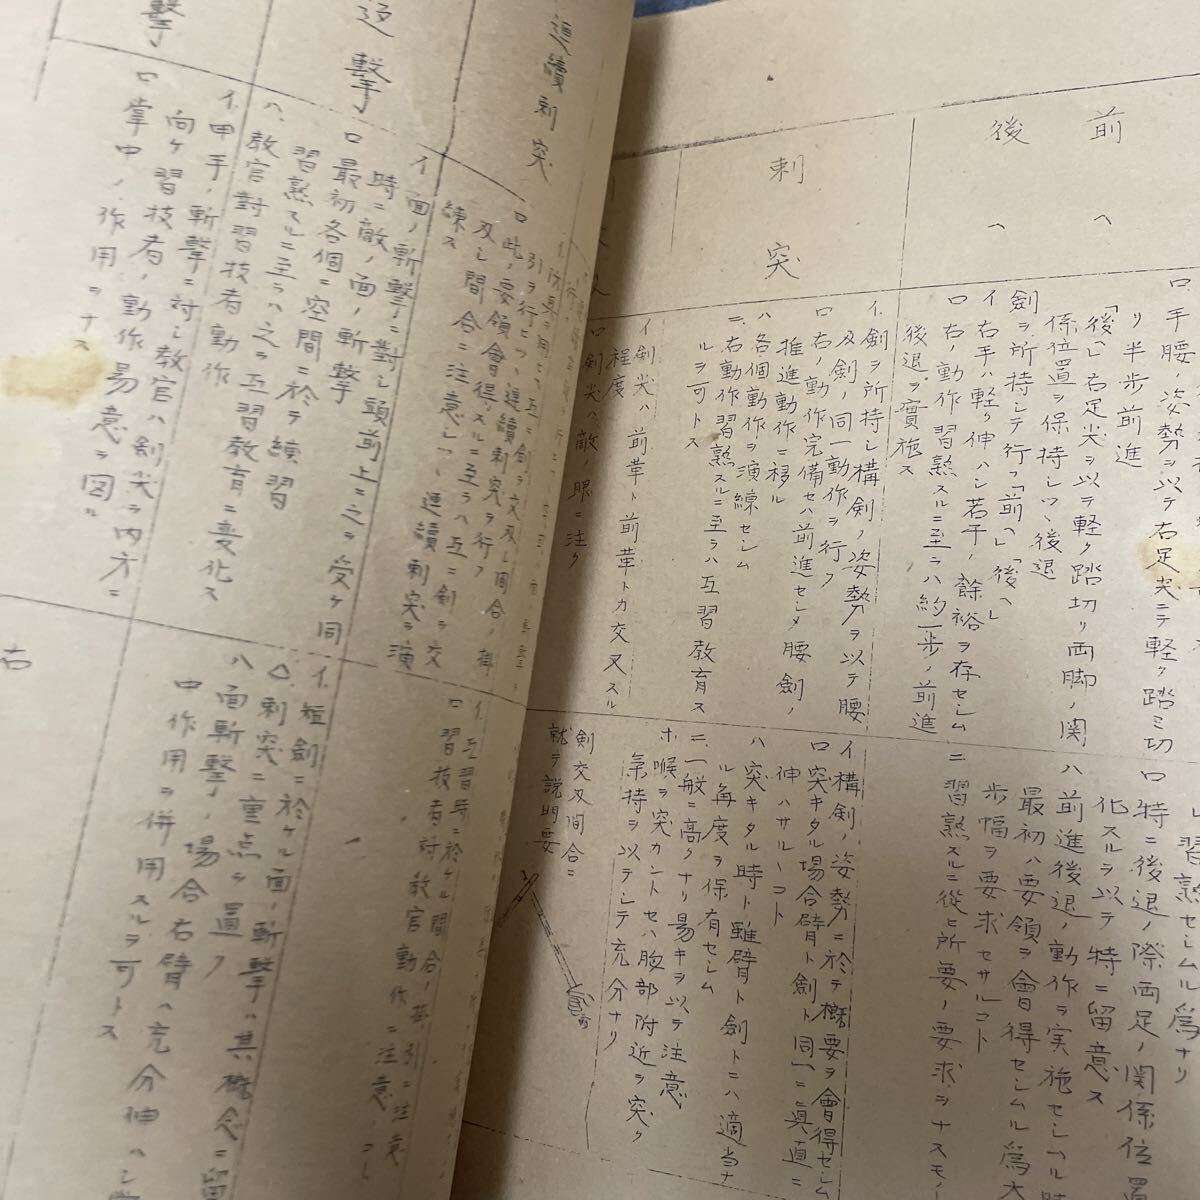 前へ
後へ
ロ、手腰ノ姿勢ヲ以テ右足尖ニテ軽ク踏ミ切
リ半歩前進
「後ヘ」右足尖ヲ以テ軽ク踏切リ両脚ノ関
係位置ヲ保持シツヽ後退
剣ヲ所持シテ行フ「前ヘ」「後ヘ」
イ右手ハ軽ク伸ハシ若干ノ餘裕ヲ存セシム
ロ右ノ動作習熟スルニ至ラハ約一歩ノ前進
後退ヲ實施ス
レ習熟セシムル為ナリ
ロ特ニ後退ノ際両足ノ関係位置
化スルヲ以テ特ニ留意ス
ハ前進後退ノ動作ヲ実施セシムル時
最初ハ要領ヲ會得セシムル為大
歩幅ヲ要求セサルコト
ニ習熟スルニ從ヒ所要ノ要求ヲナスモノ
刺突
イ剣ヲ所持シ構剣ノ姿勢ヲ以テ腰
及剣ノ同一動作ヲ行フ
ロ右ノ動作完備セハ前進セシメ腰剣ノ
推進動作ニ移ル
ハ各個動作ヲ演練セシム
ニ右動作習熟スルニ至ラハ互習教育ス
ルヲ可トス
イ構剣ノ姿勢ニ於テ概要ヲ會得セシム
ロ突キタル場合臂ト剣ト同一ニ真直ニ
伸ハサルコト
ハ突キタル時ト雖臂ト剣トニハ適当ナ
ル角度ヲ保有セシム
ニ一般ニ高クナリ易キヲ以テ注意
ホ喉ヲ突カントセハ胸部附近ヲ突ク
氣持ヲ以テシテ充分ナリ
イ剣尖ハ前革ト前革トカ交叉スル
程度
ロ剣尖ハ敵ノ眼ニ注ク
剣交叉間合ニ
就テ説明要
連續刺突
引ヲ行ヒツヽ連續刺突ヲ行フ
ロ此ノ要領會得スルニ至ラハ互ニ剣ヲ交
叉シ間合ニ注意シツヽ連續刺突ヲ演
練ス
イ、互習時ニ於ケル間合ノ
ロ習技者対教官動作ニ注意
逆撃
イ面ノ斬撃ニ對シ頭前上ニ之ヲ受ケ同
時ニ敵ノ面ノ斬撃
ロ最初各個ニ空間ニ於テ練習
習熟スルニ至ラハ之ヲ互習教育ニ変化ス
ハ、教官對習技者動作
イ、短剣ニ於ケル面ノ斬撃ハ其概念ニ留
ロ刺突ニ重点ヲ置ク
ハ面斬撃ノ場合右臂ハ充分伸ハシ
ロ作用ヲ併用スルヲ可トス
撃
イ、甲手ノ斬撃ニ対シ教官ハ剣尖ヲ内方ニ
向ケ習技者ノ動作易意ヲ図ル
ロ掌中ノ作用ヲナス
右